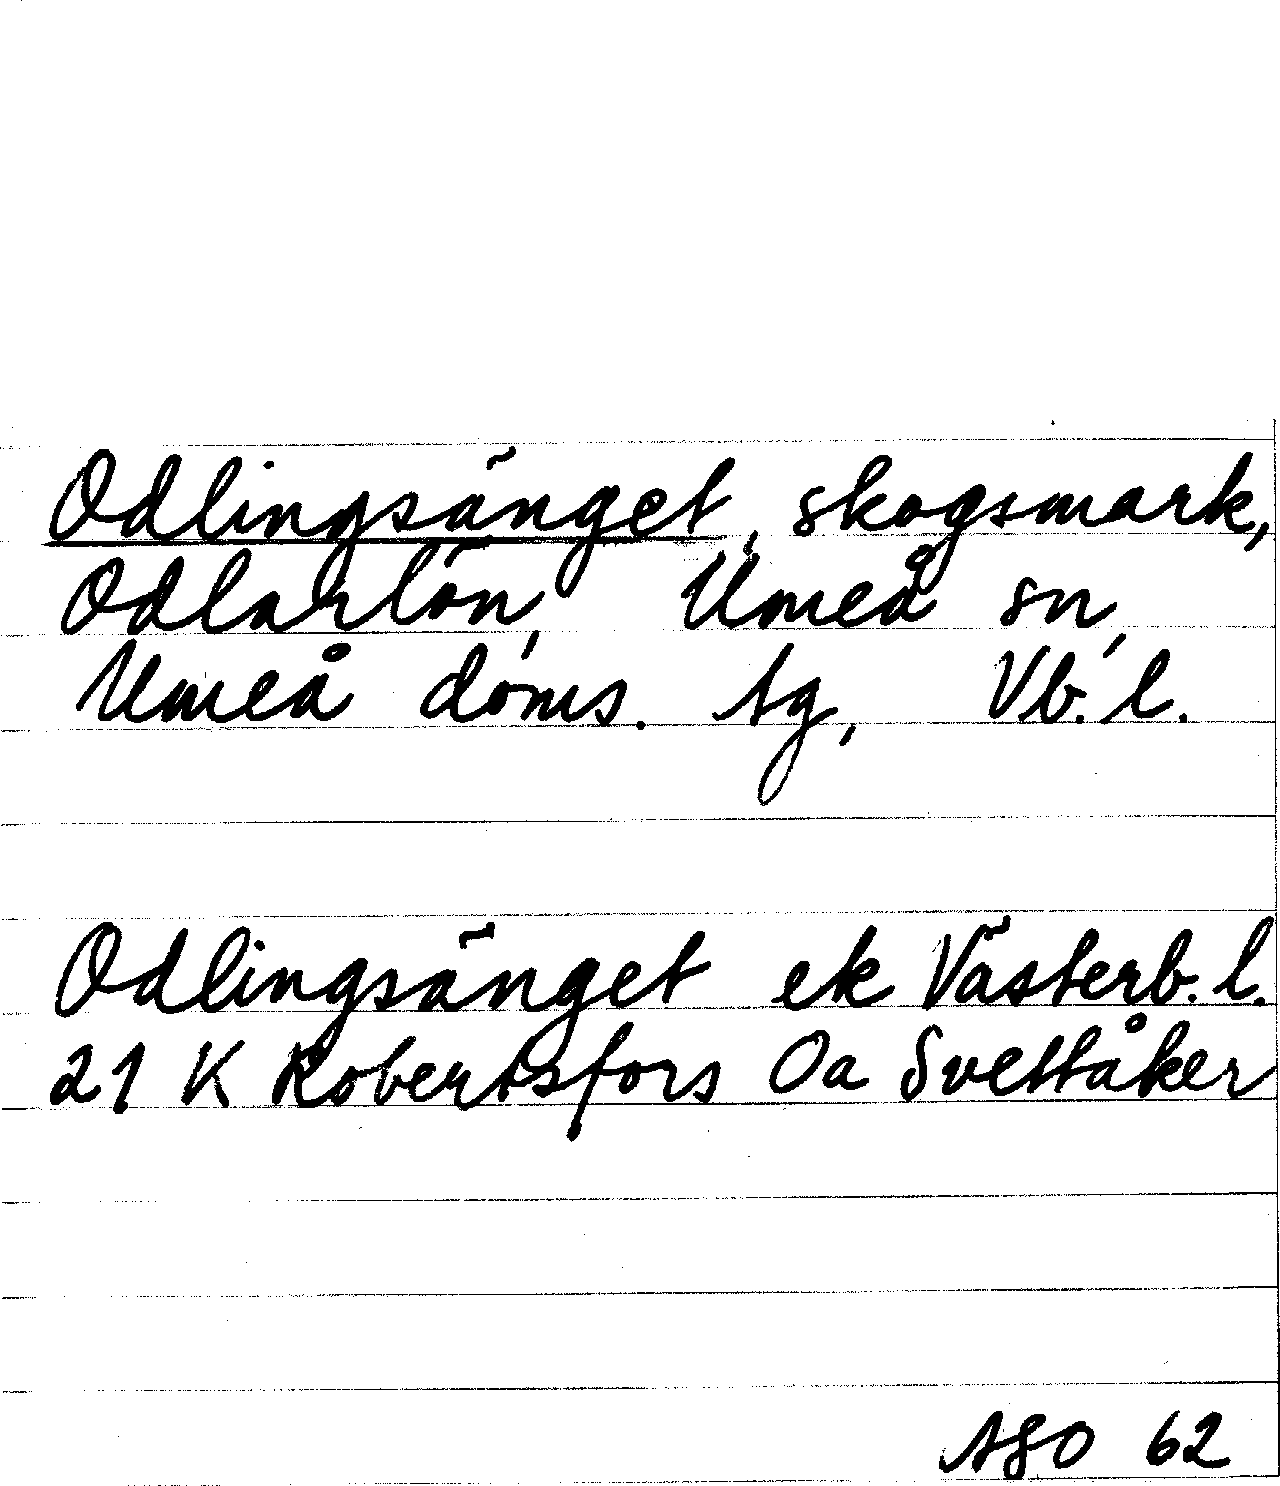 Odlingsänget, skogsmark,
Umeå sn,
Umeå doms. tg, Vb. l.
Odlingsänget ek Västerb. l.
21 K Robertsfors Oa Svettåker
62